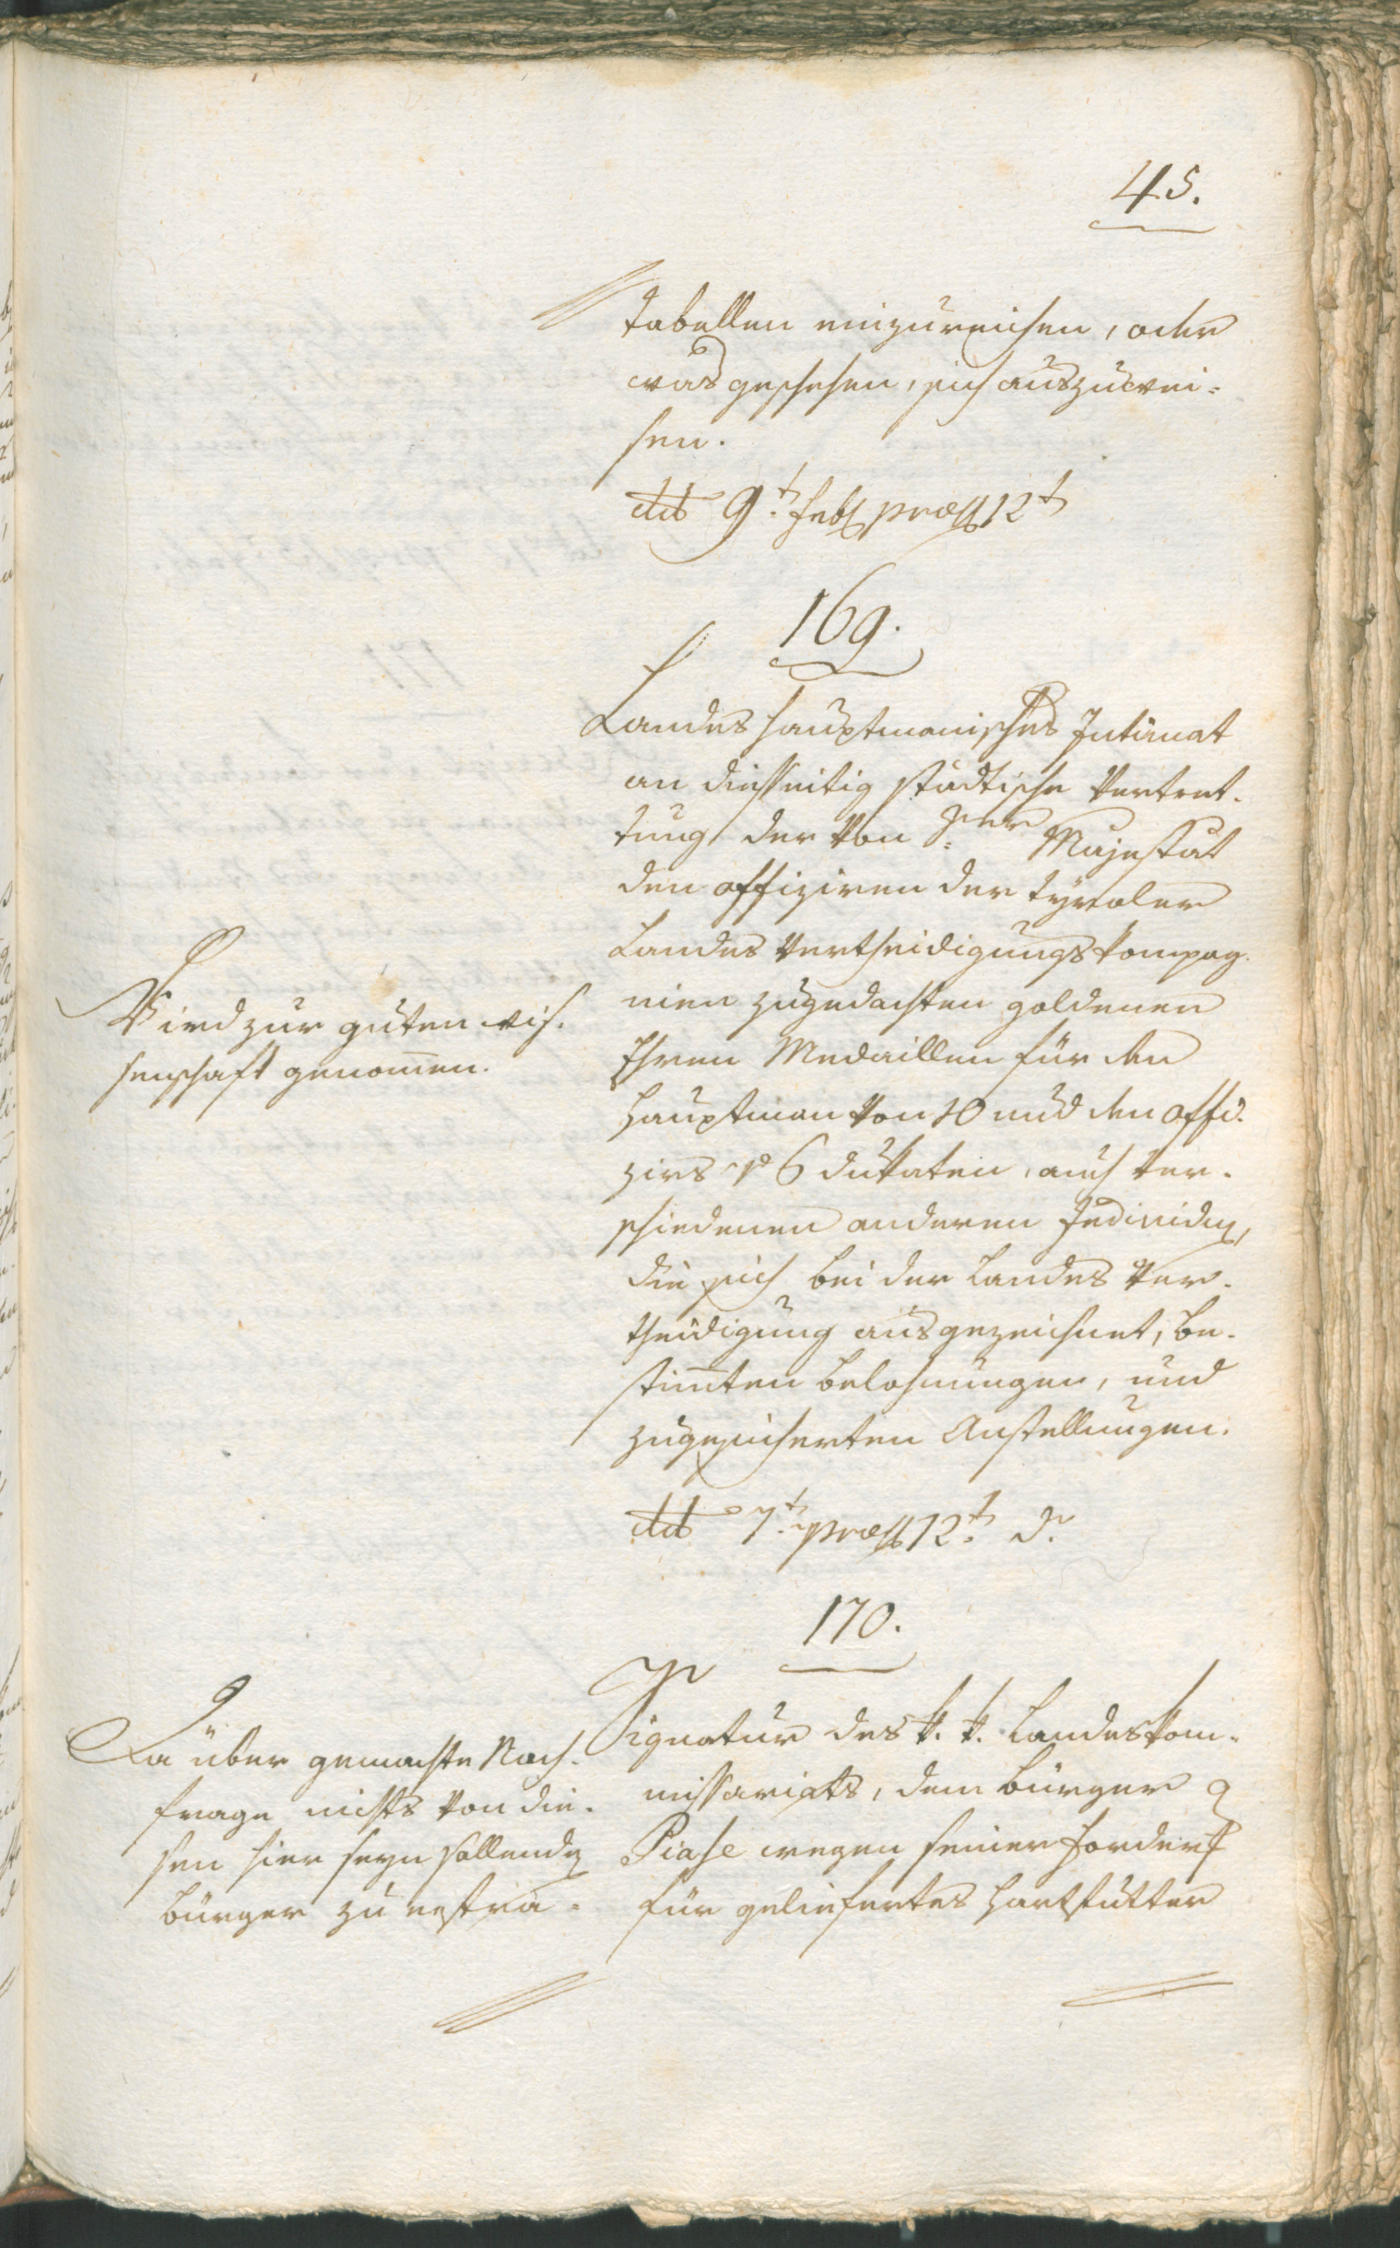 45.
Tabellen einzureichen, oder
was geschehen, sich auszuwei¬
sen.
ddo 9t. Feb. praes. 12t
169.
Landeshauptmanisches Intimat
an diesseitig städtische Vertret¬
tung der von Sr. Majestät
den Offiziren der tyroler
Landes Vertheidigungskompag¬
nien zugedachten goldenen
Ehren Medaillen für den
Hauptman von 10 und den Offi¬
zirs pr 6 Dukaten, auch ver¬
schiedenen anderen Individuen,
die sich bei der Landes Ver¬
theidigung ausgezeichnet, be¬
stimten Belohnungen, und
zugesicherten Anstellungen.
ddo 7t. praes. 12t. d.
Wird zur guten wis¬
senschaft genomen.
170.
Signatur des k. k. Landeskom¬
missariats, dem Bürger
Piase wegen seiner Forder.
für geliefertes Hartfutter
Da über gemachte Nach¬
frage nichts von die¬
sen hier seyn sollenden
Bürger zu